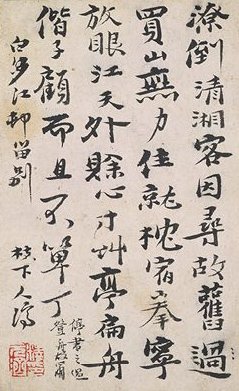 潦倒清湘客因尋故舊過
買山無力住就枕宿奉寧
放眼江天外賒心寸艸亭扁舟
偕子顧而且不單丁
白沙江邨留別
枝下人濟